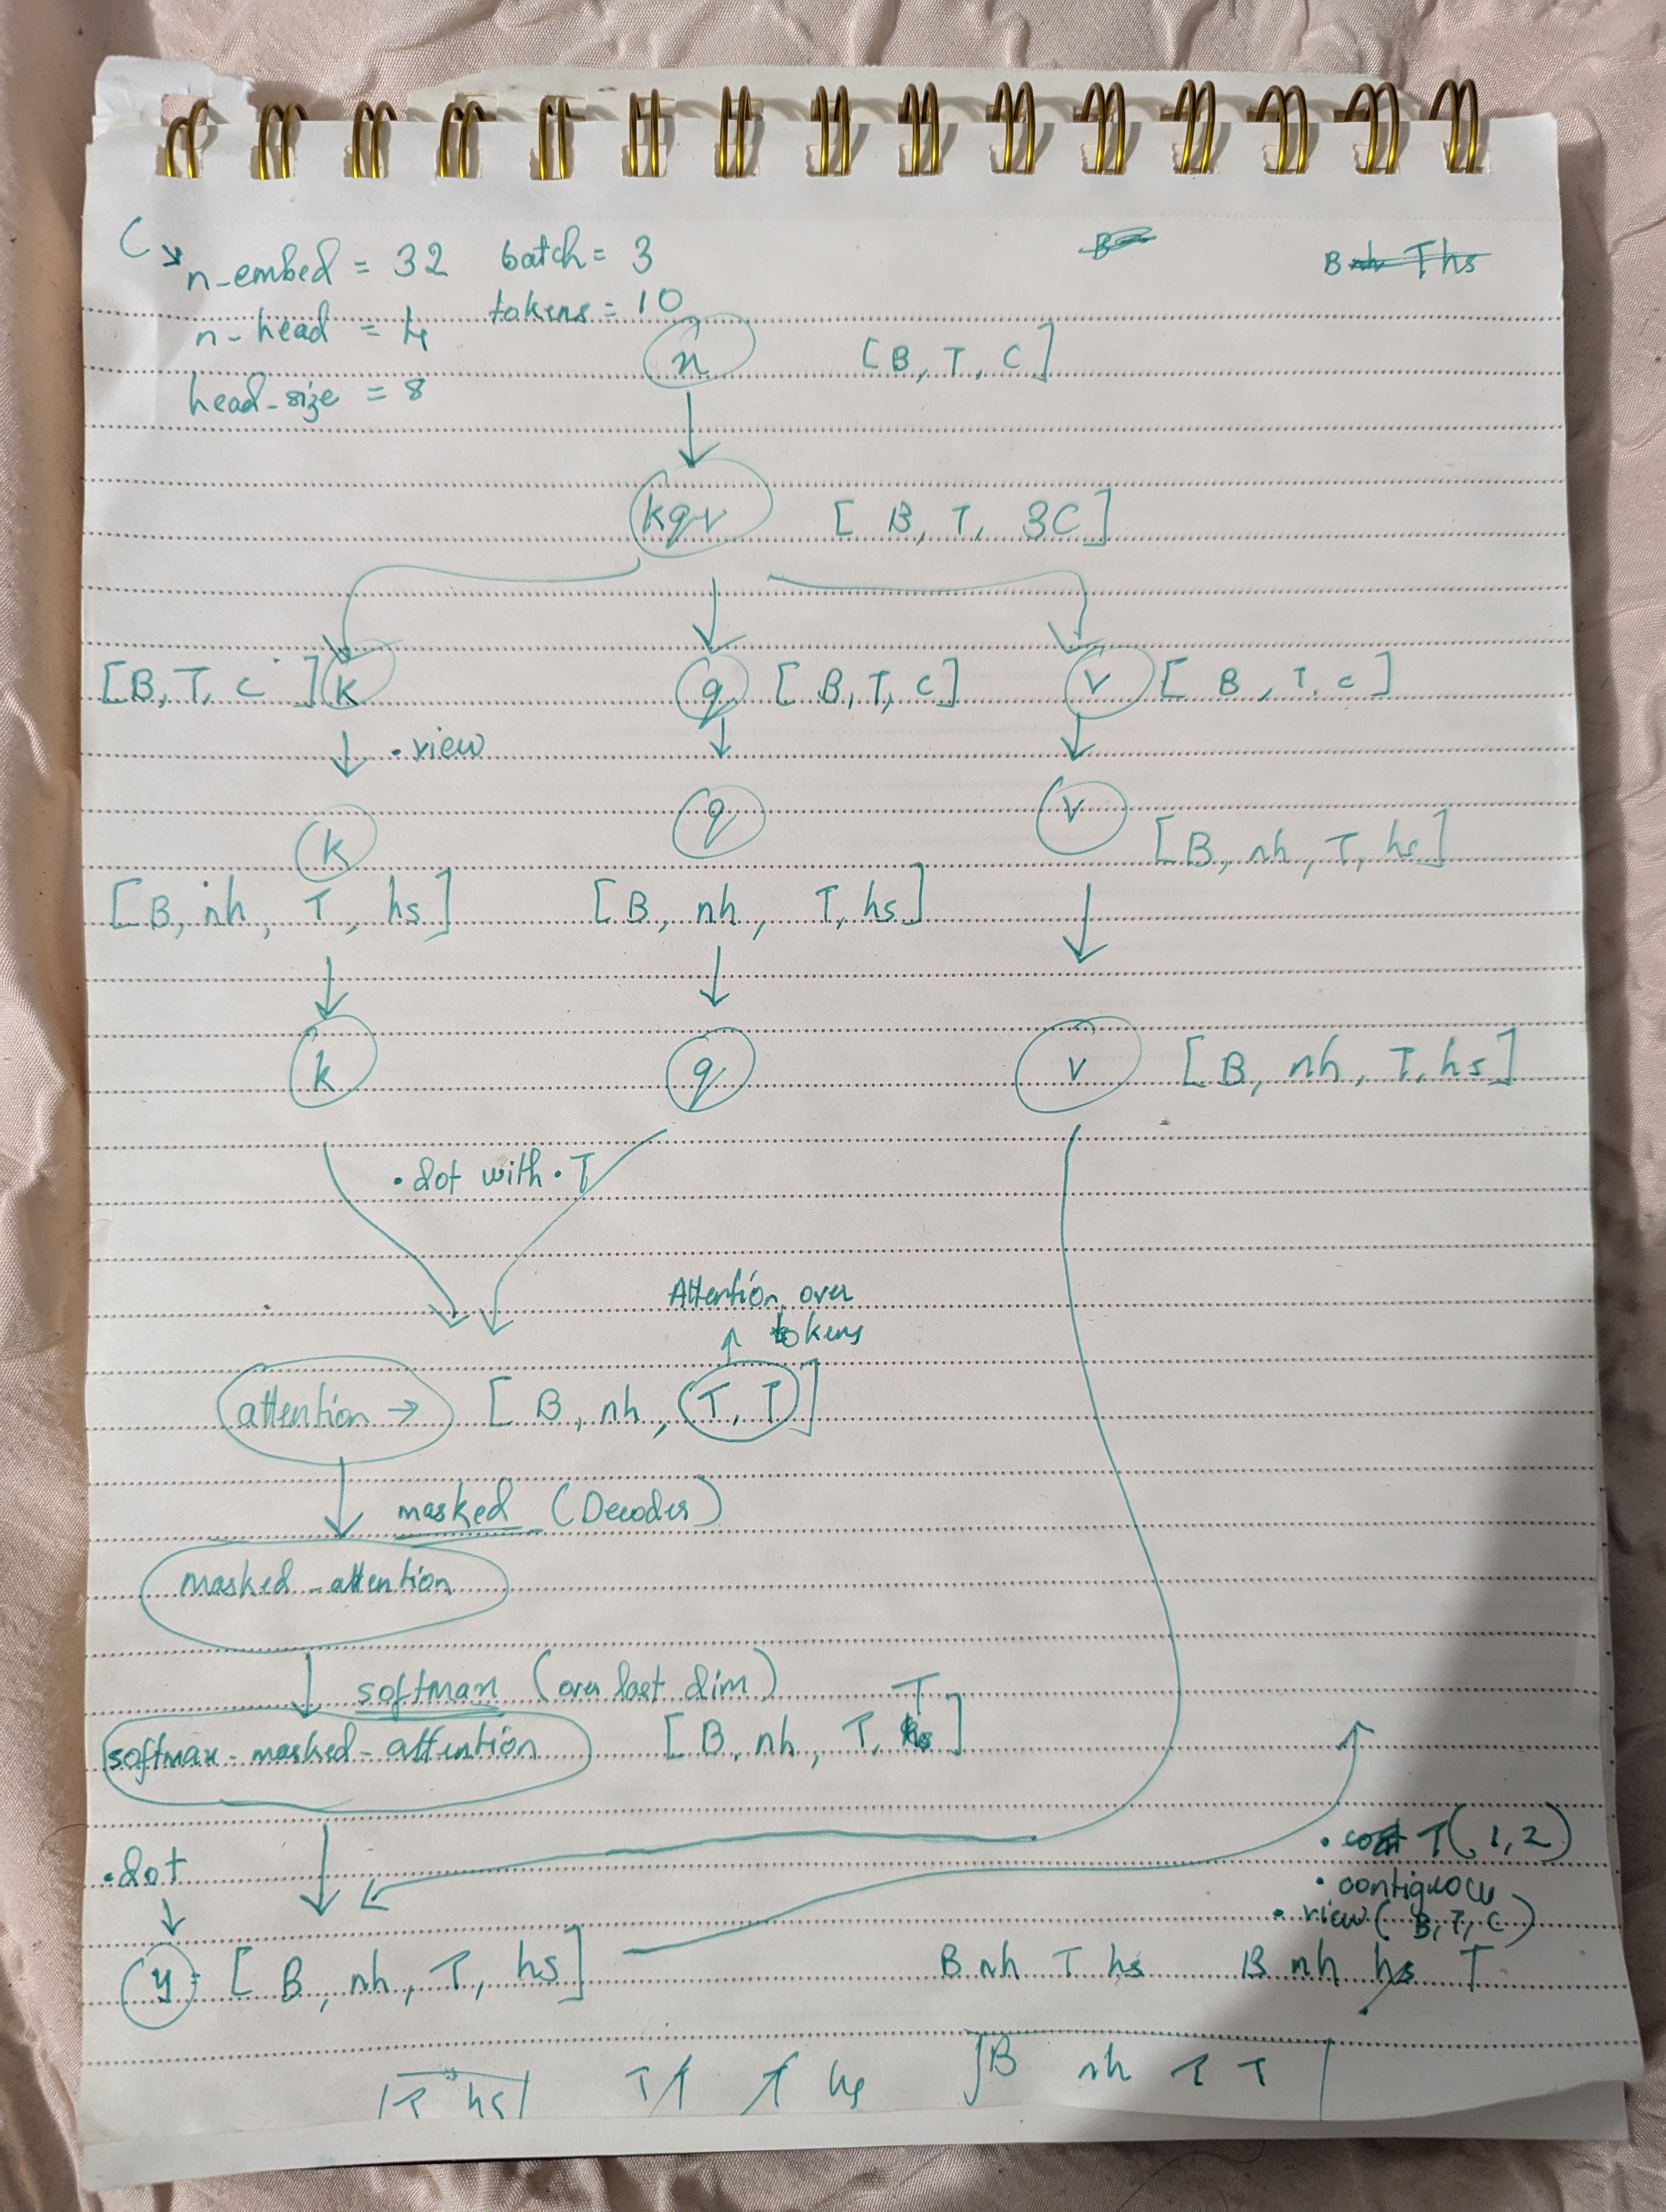 C
n-embed = 32 batch = 3
n-head = 4 tokens = 10
head-size = 8
B nh T hs
x [B, T, C]
kqv [B, T, 3C]
[B, T, C] k q [B, T, C] v [B, T, C]
.view
k q v [B, nh, T, hs]
[B, nh, T, hs] [B, nh, T, hs]
k q v [B, nh, T, hs]
.dot with .T
Attention over
tokens
attention → [B, nh, T, T]
masked (Decoder)
masked-attention
softmax (over last dim)
T
softmax-masked-attention [B, nh, T, hs]
.dot
. T(1,2)
. contiguous
. view(B, T, C)
y = [B, nh, T, hs] B nh T hs B nh hs T
T hs T T T hs B nh T T